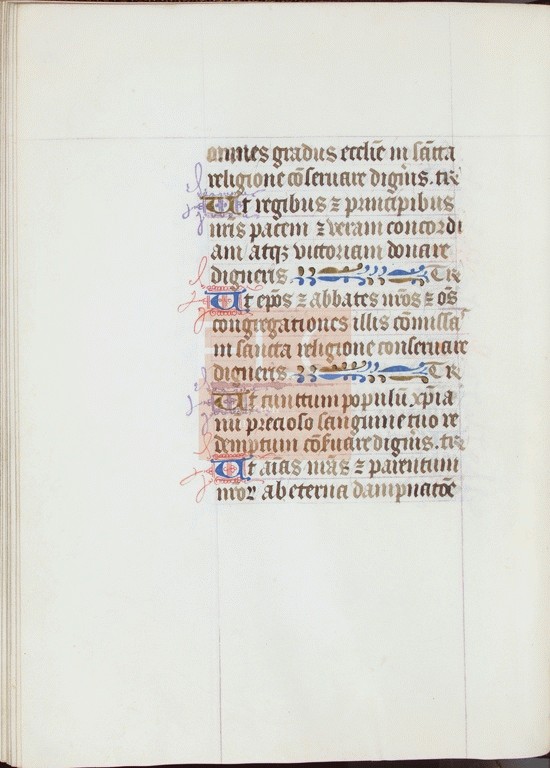 omnes gradus ecclīe in sācta
religione cōseruare digñis. te
Ut regibus ⁊ principibus
nris pacem ⁊ veram concordi
am atqꝫ victoriam donare
digneris Te
Ut ep̄os ⁊ abbates nr̄os ⁊ oēs
congregationes illis cōmissas
in sancta religione conseruare
digneris Te
Ut cunctum populū xp̄ia
nū precioso sanguine tuo re
demptum cōẛuare digñis. te
Ut aīas nr̄as ⁊ parentum
nroꝝ ab eterna dampnatōe